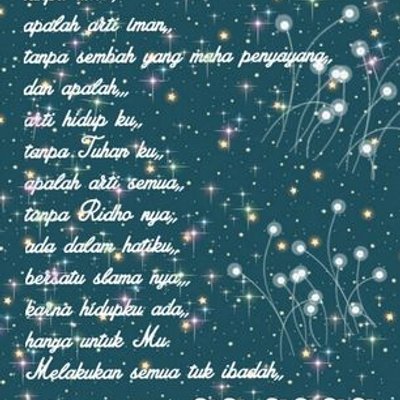 apalah arti iman,,
tanpa sembah yang maha penyayang,,
dan apalah,,,
arti hidup ku,,
tanpa Tuhan ku,,
apalah arti semua,,
tanpa Ridho nya,,
ada dalam hatiku,,
bersatu slama nya,,,
karna hidupku ada,,
hanya untuk Mu.
Melakukan semua tuk ibadah,,